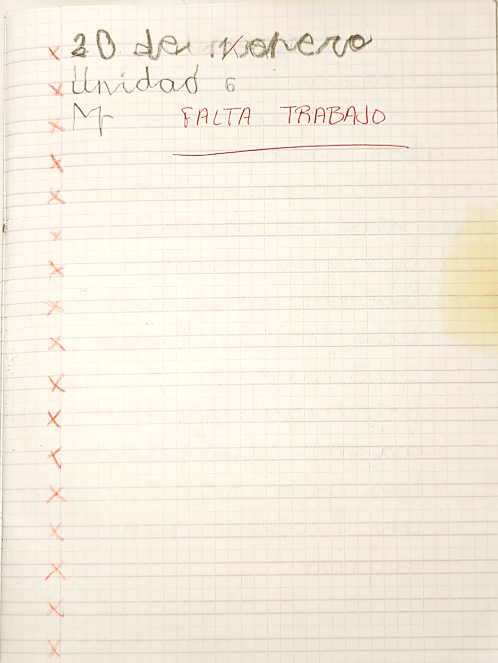 20 de enero
Unidad 6
M
FALTA TRABAJO